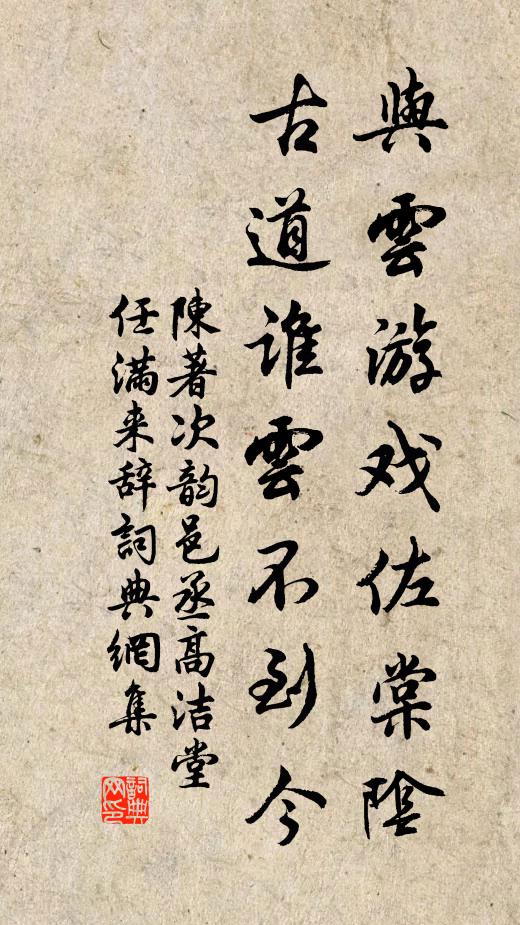 與雲游戏佐棠陰
古道谁雲不到今
陳著次韵邑丞高洁堂
任滿来辞詞典網集
詞典
网印